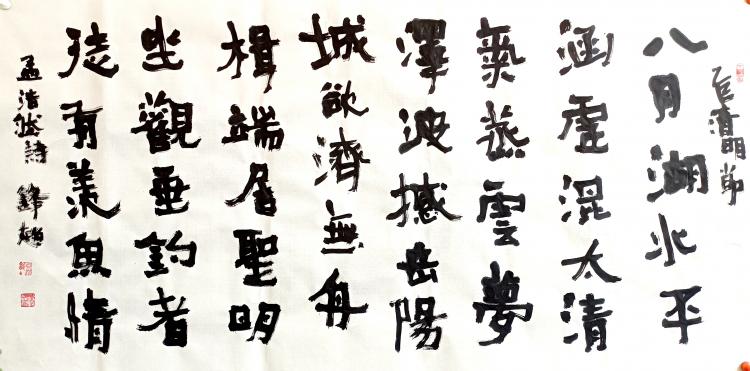 清明節
八月湖水平
涵虛混太清
氣蒸雲夢
澤波撼岳陽
城欲濟無舟
楫端居聖明
坐觀垂釣者
徒有羨魚情
孟浩然詩 鋒